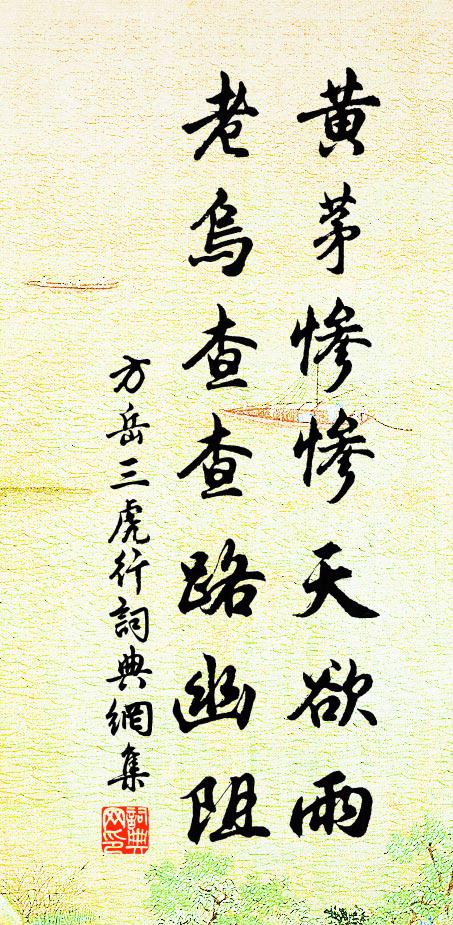 黄茅慘慘天欲雨
老烏查查路幽阻
方岳三虎行詞典網集
詞典网印